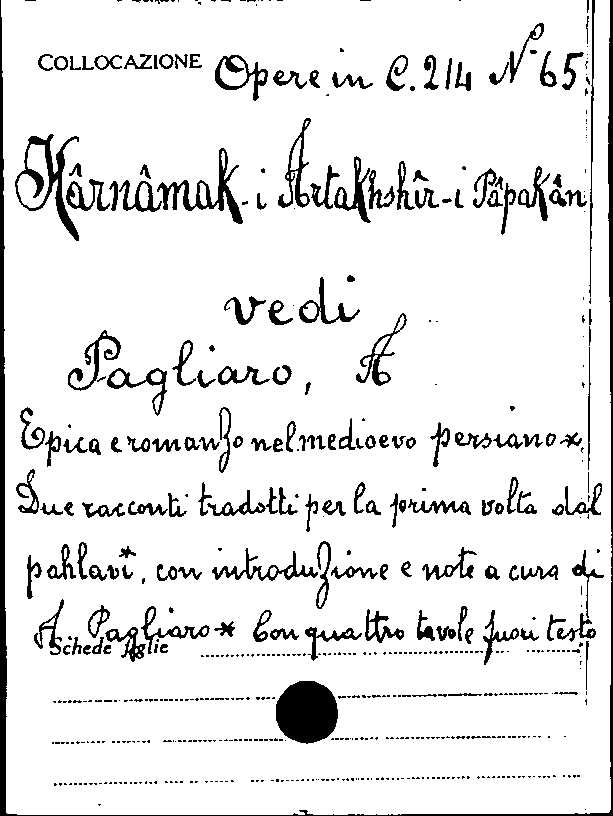 COLLOCAZIONE Opere in C. 214 N° 65
Kârnâmak-i Ârtakhshîr-i Pâpakân
vedi
Pagliaro, A
Epica e romanzo nel medioevo persiano *
Due racconti tradotti per la prima volta dal
pahlavi*, con introduzione e note a cura di
A. Pagliaro * Con quattro tavole fuori testo
Schede figlie